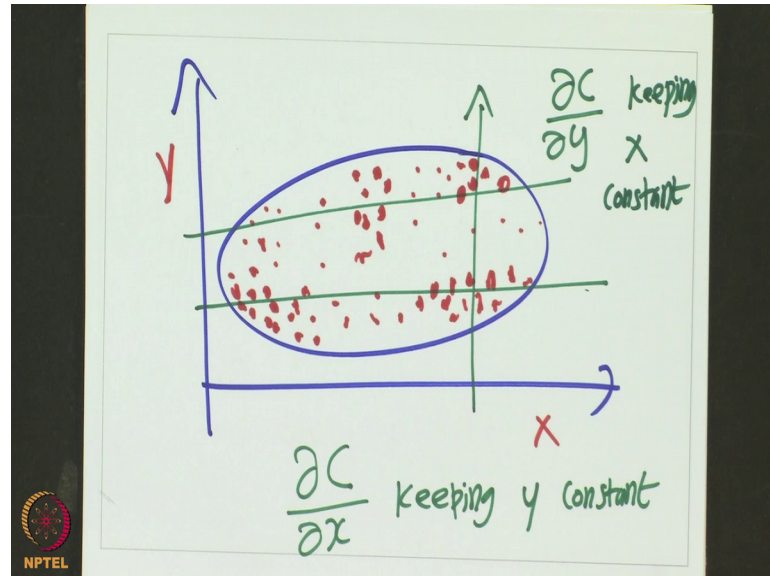 ∂C/∂y keeping
x
constant
y
x
∂C/∂x keeping y constant
NPTEL